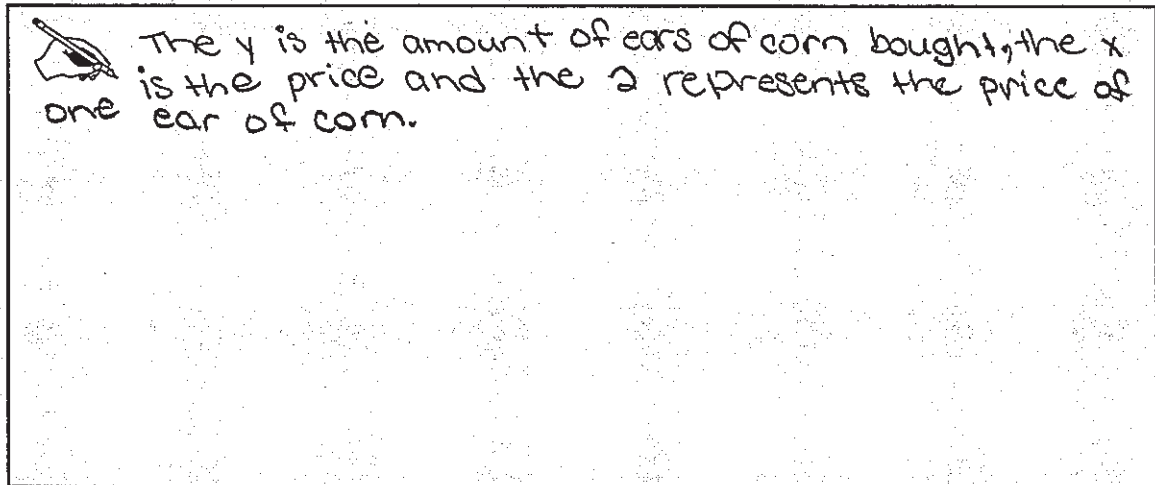 The y is the amount of ears of corn bought, the x
is the price and the 2 represents the price of
one ear of corn.